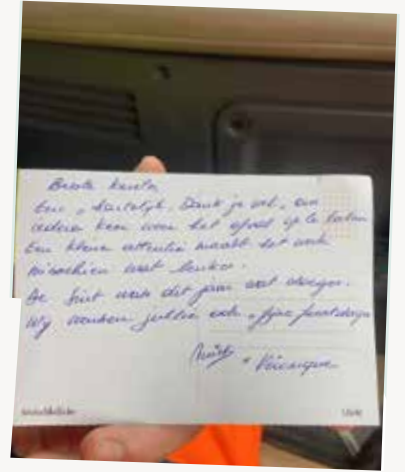 Beste
Een "hartelijk Dank je wel" om
iedere keer weer het afval op te halen
Een kleine attentie maakt het werk
misschien wat leuker.
De Sint was dit jaar wat vroeger.
Wij wensen jullie ook fijne feestdagen
+ Véronique